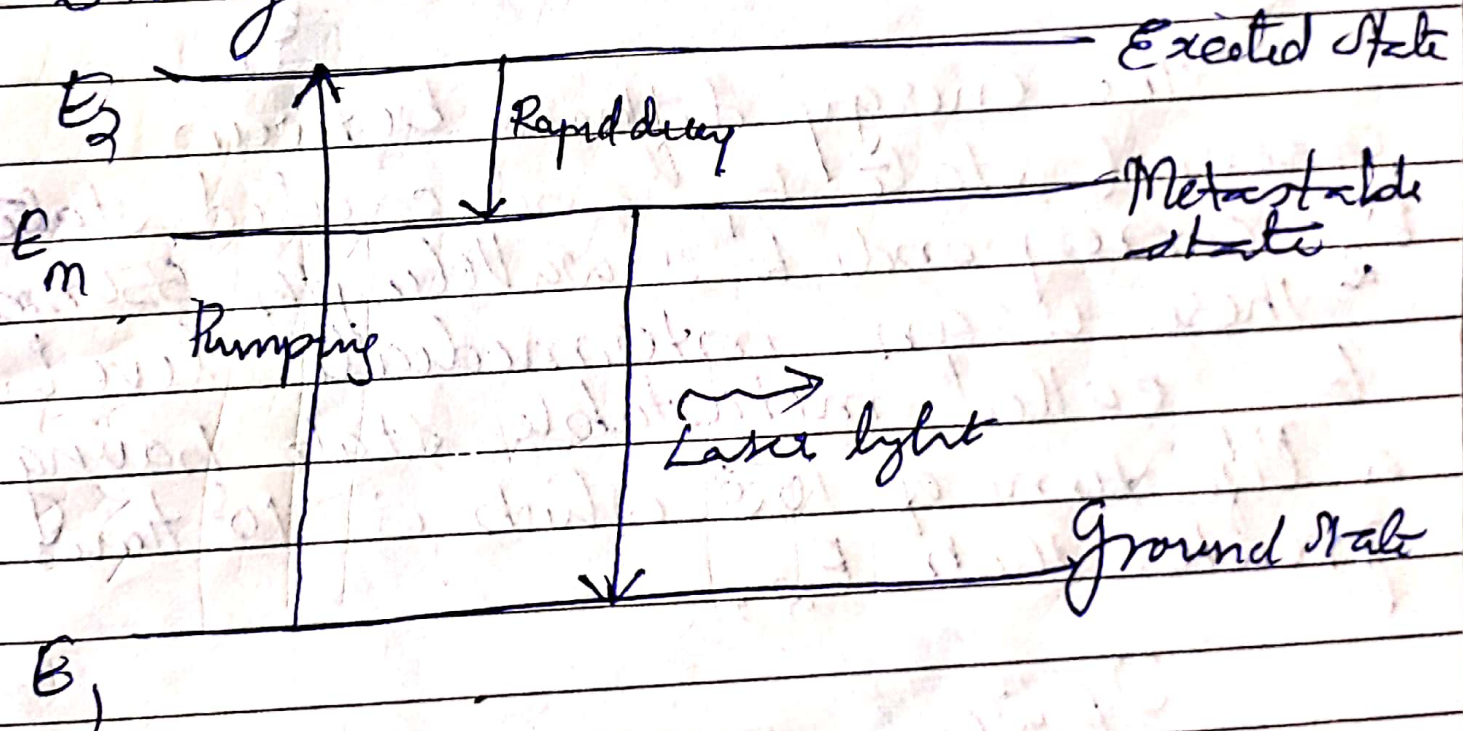 Excited State
E2
Rapid decay
Em
Metastable
state
Pumping
Laser light
Ground State
E1